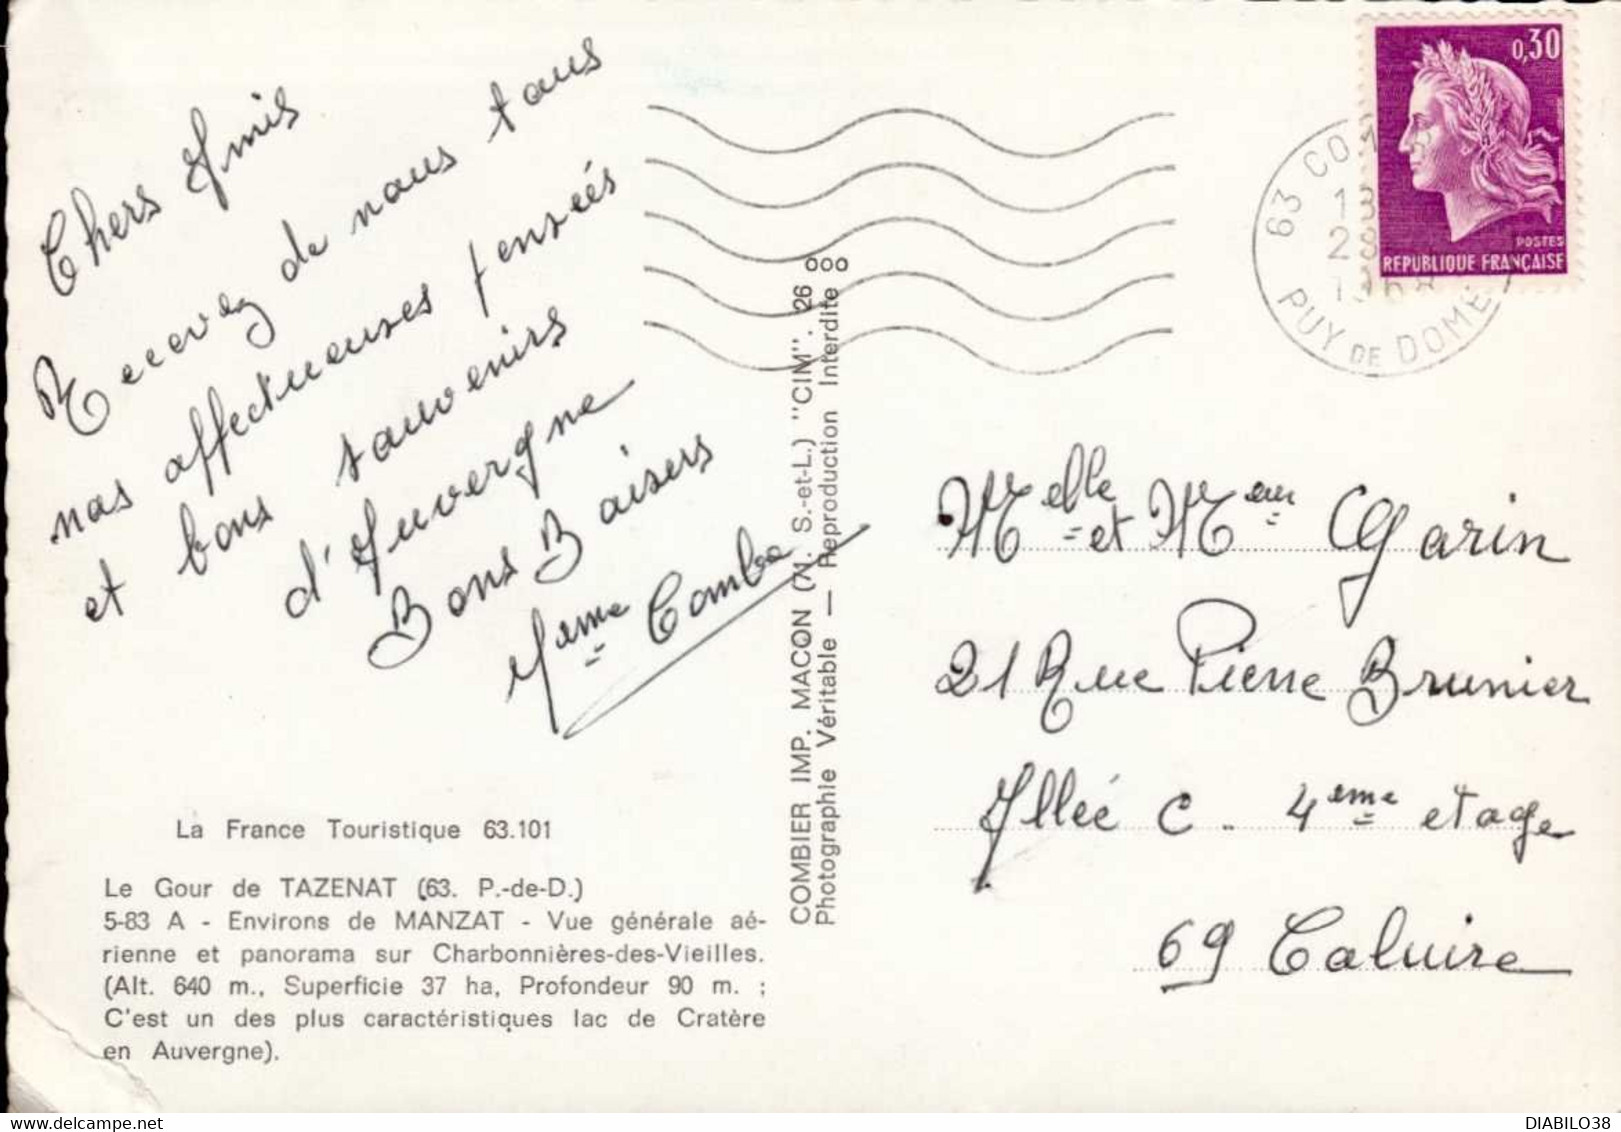 Chers Amis
Recevez de nous tous
nos affectueuses pensées
et bons souvenirs
d'Auvergne
Bons Baisers
Mame Combe
La France Touristique 63.101
Le Gour de TAZENAT (63. P.-de-D.)
5-83 A - Environs de MANZAT - Vue générale aé-
rienne et panorama sur Charbonnières-des-Vieilles.
(Alt. 640 m., Superficie 37 ha, Profondeur 90 m. ;
C'est un des plus caractéristiques lac de Cratère
en Auvergne).
COMBIER IMP. MACON (N. S.-et-L.) "CIM". 26 ooo
Photographie Véritable — Reproduction Interdite
0,30
POSTES
REPUBLIQUE FRANÇAISE
63 CO
13
28
PUY DE DOME
Melle et Meur Garin
21 Rue Pierre Brunier
Allée C. 4eme etage
69 Caluire
DIABILO38